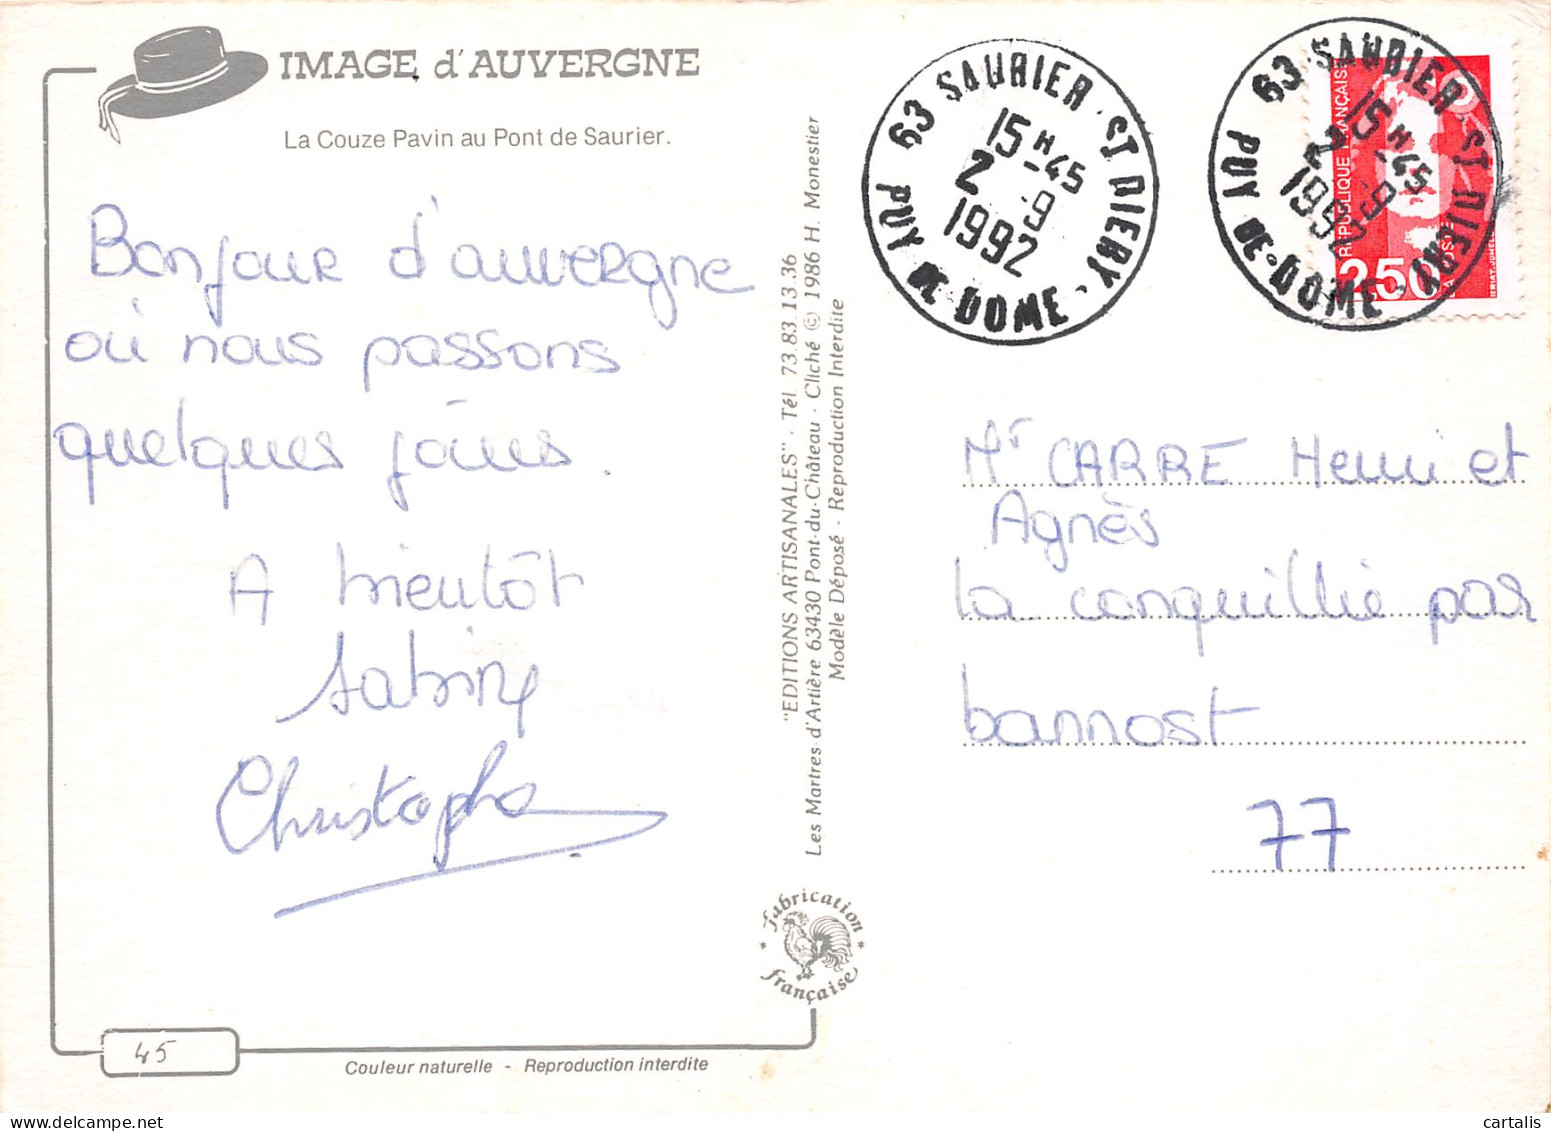 IMAGE d'AUVERGNE
La Couze Pavin au Pont de Saurier.
Bonjour d'auvergne
où nous passons
quelques jours.
A bientôt
Sabine
Christophe
45
Couleur naturelle - Reproduction interdite
"EDITIONS ARTISANALES" - Tél 73.83.13.36
Les Martres-d'Artière 63430 Pont-du-Château - Cliché © 1986 H. Monestier
Modèle Déposé - Reproduction Interdite
fabrication
française
63 SAURIER · ST DIERY · PUY DE DOME
15H45
2 9
1992
63 SAURIER · ST DIERY · PUY DE DOME
15H45
2 9
1992
RÉPUBLIQUE FRANÇAISE
2,50
LA POSTE
Mr CARRE Henri et
Agnès
La conquillie par
bannost
77
cartalis
delcampe.net